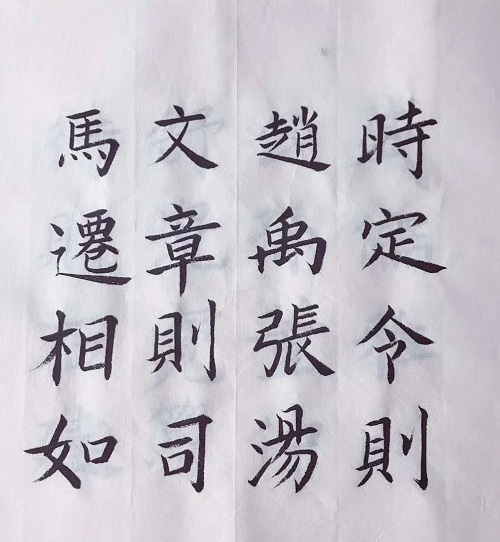 時定令則
趙禹張湯
文章則司
馬遷相如